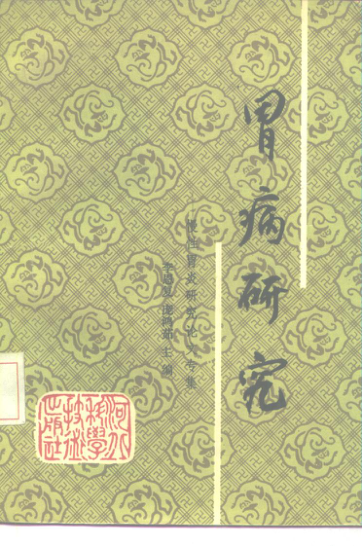 胃病研究
慢性胃炎研究论文专集
主编
河北
科学
技术
出版社